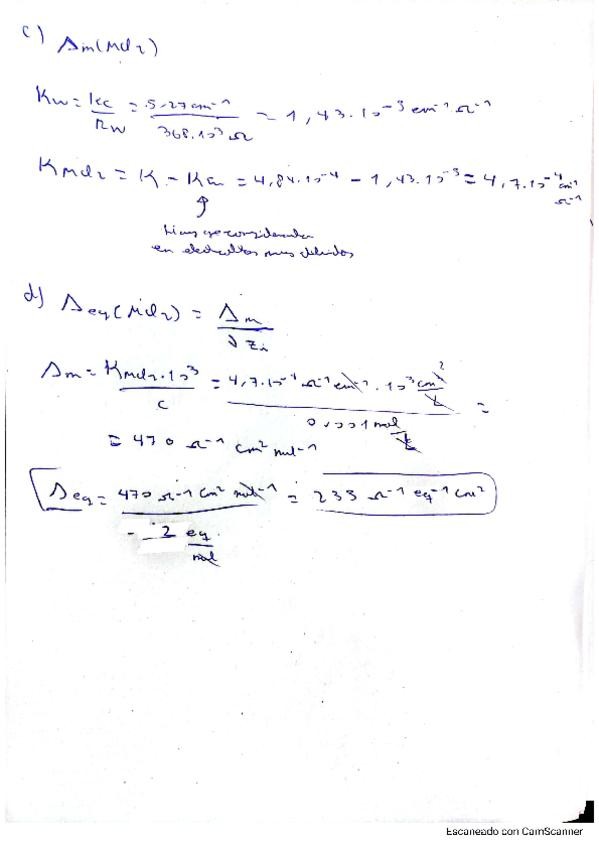 c) Λm(MCl2)
Kw = kc/Rw = 5,27 cm⁻¹ / 368·10³ Ω = 1,43·10⁻³ cm⁻¹ Ω⁻¹
KMCl2 = K - Kw = 4,84·10⁻⁴ - 1,43·10⁻³ = 4,7·10⁻⁴ cm⁻¹ Ω⁻¹
↑
hay que considerarla
en electrolitos muy diluidos
d) Λeq(MCl2) = Λm / νZi
Λm = KMCl2·10³ / C = 4,7·10⁻⁴ Ω⁻¹ cm⁻¹ · 10³ cm³/L / 0,001 mol/L =
= 470 Ω⁻¹ cm² mol⁻¹
Λeq = 470 Ω⁻¹ cm² mol⁻¹ / 2 eq/mol = 235 Ω⁻¹ eq⁻¹ cm²
Escaneado con CamScanner